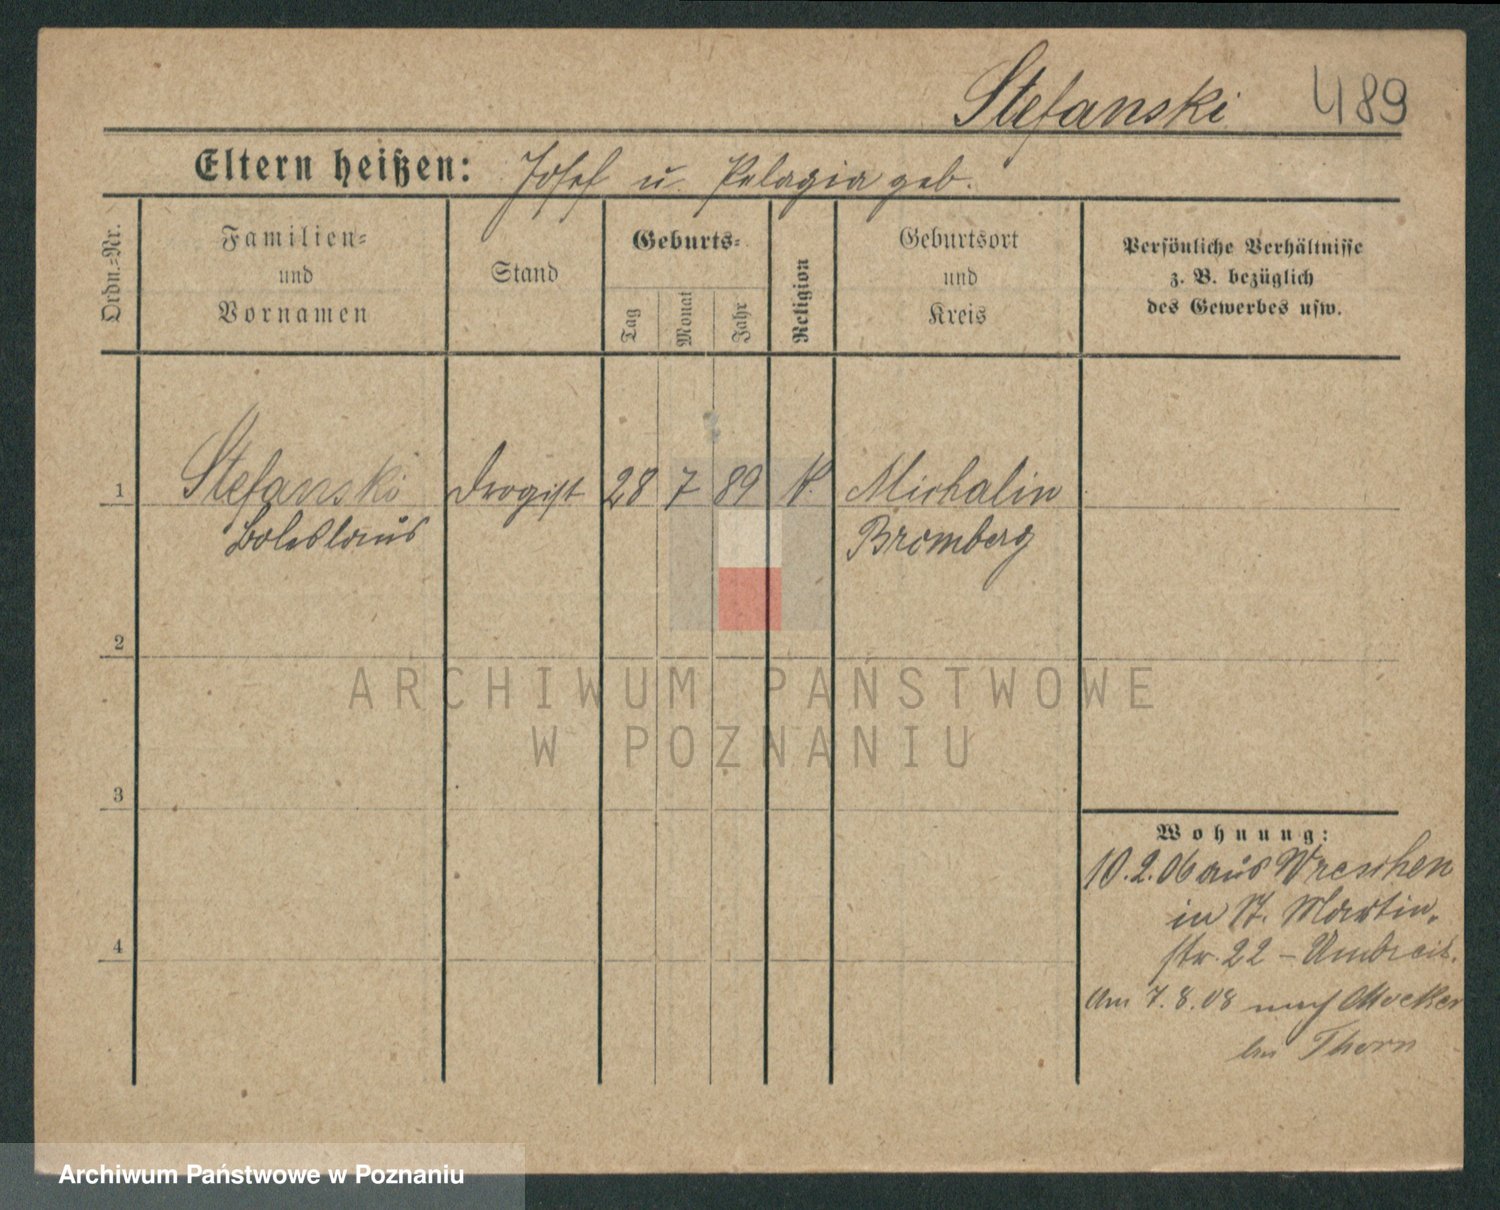 Stefanski 489
Eltern heißen: Josef u. Pelagia geb.
Ordn.-Nr.
Familien-
und
Vornamen
Stand
Geburts-
Tag
Monat
Jahr
Religion
Geburtsort
und
Kreis
Persönliche Verhältnisse
z. B. bezüglich
des Gewerbes usw.
1 Stefanski Drogist 28 7 89 K. Michalin
Boleslaus Bromberg
2
3
4
Wohnung:
10.2.06 aus Wreschen
in St. Martin-
str. 22 – Umbreit.
Am 7.8.08 nach Mocker
bei Thorn
ARCHIWUM PAŃSTWOWE
W POZNANIU
Archiwum Państwowe w Poznaniu